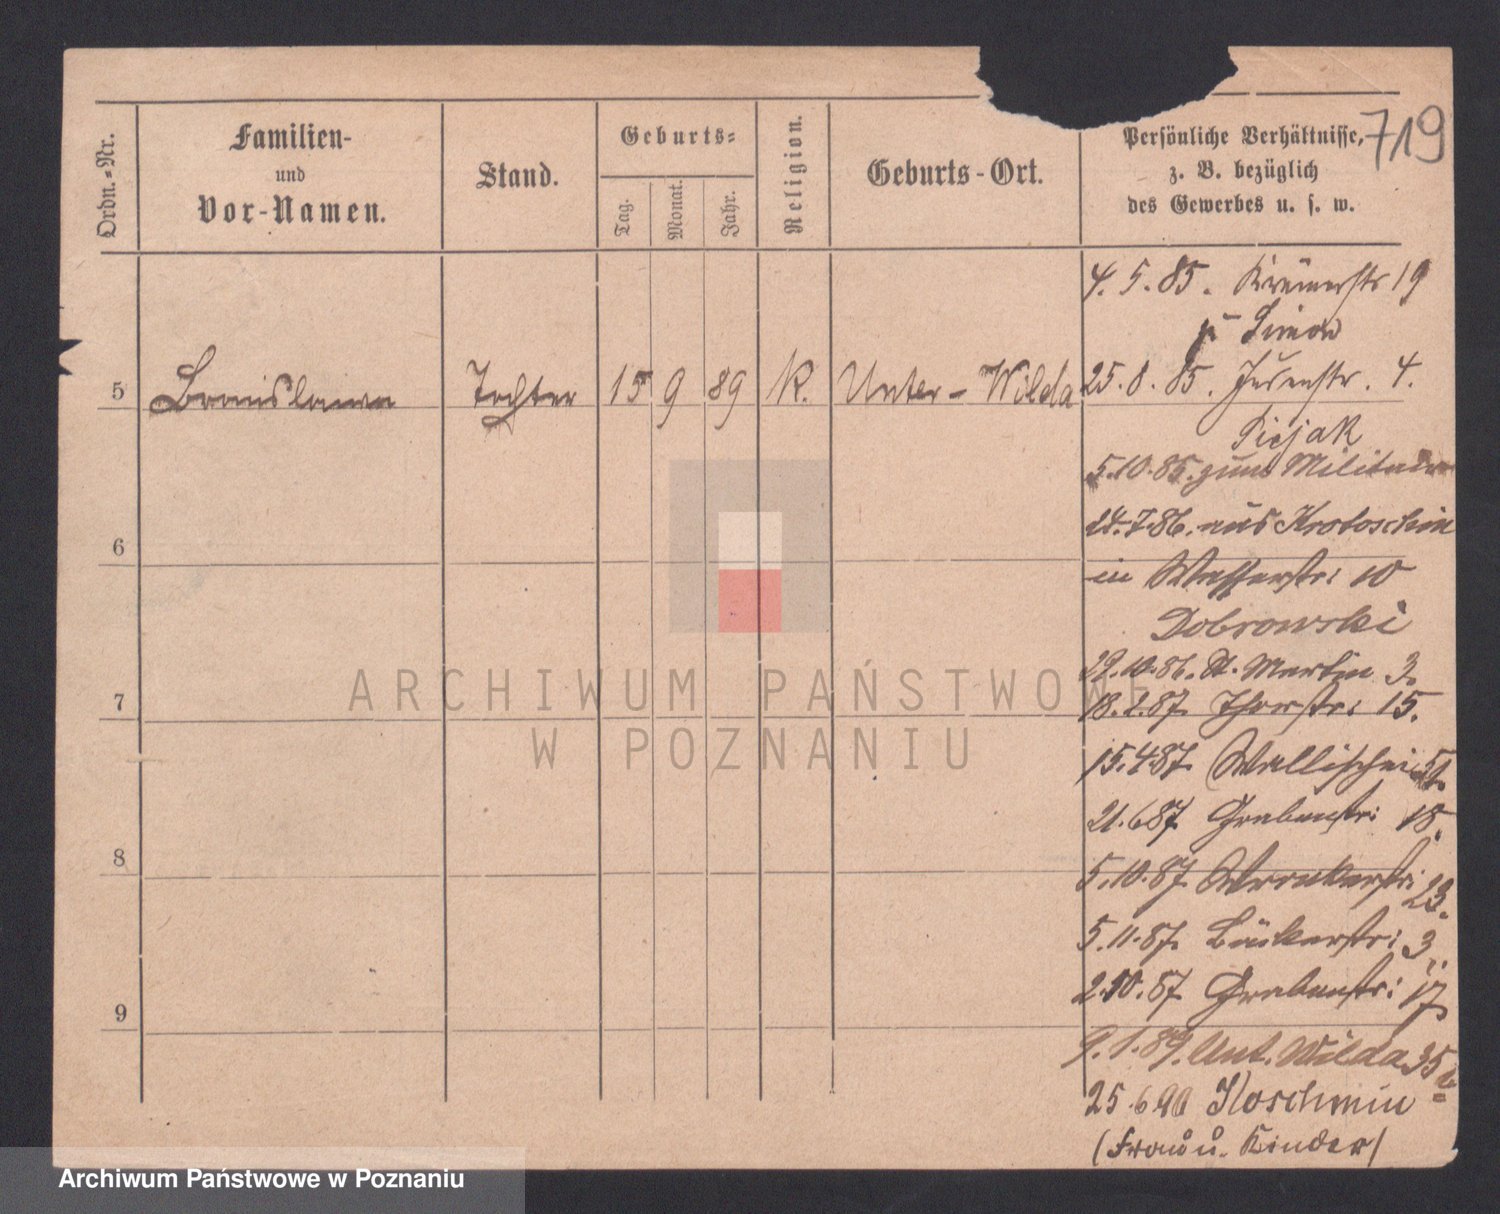 719
Ordn.-Nr.
Familien-
und
Vor-Namen.
Stand.
Geburts-
Tag.
Monat.
Jahr.
Religion.
Geburts-Ort.
Persönliche Verhältnisse,
z. B. bezüglich
des Gewerbes u. s. w.
5 Bronislawa Tochter 15 9 89 K. Unter-Wilda
6
7
8
9
4. 5. 85. Krämerstr 19
Simon
25. 8. 85. Judenstr. 4.
5.10.85. zum Militair
24.7.86. aus Krotoschin
in Wasserstr: 10
Dobrowski
29.10.86. St. Martin 3.
18.2.87. Thorstr: 15.
15.4.87. Wallischei 51.
21.6.87. Grabenstr: 18.
5.10.87. Wronkerstr: 23.
5.11.87. Bäckerstr: 3.
2.10.87. Grabenstr: 17.
9.1.89. Unt. Wilda 35
25.6.90 Koschmin
(Frau u. Kinder)
ARCHIWUM PAŃSTWOWE
W POZNANIU
Archiwum Państwowe w Poznaniu